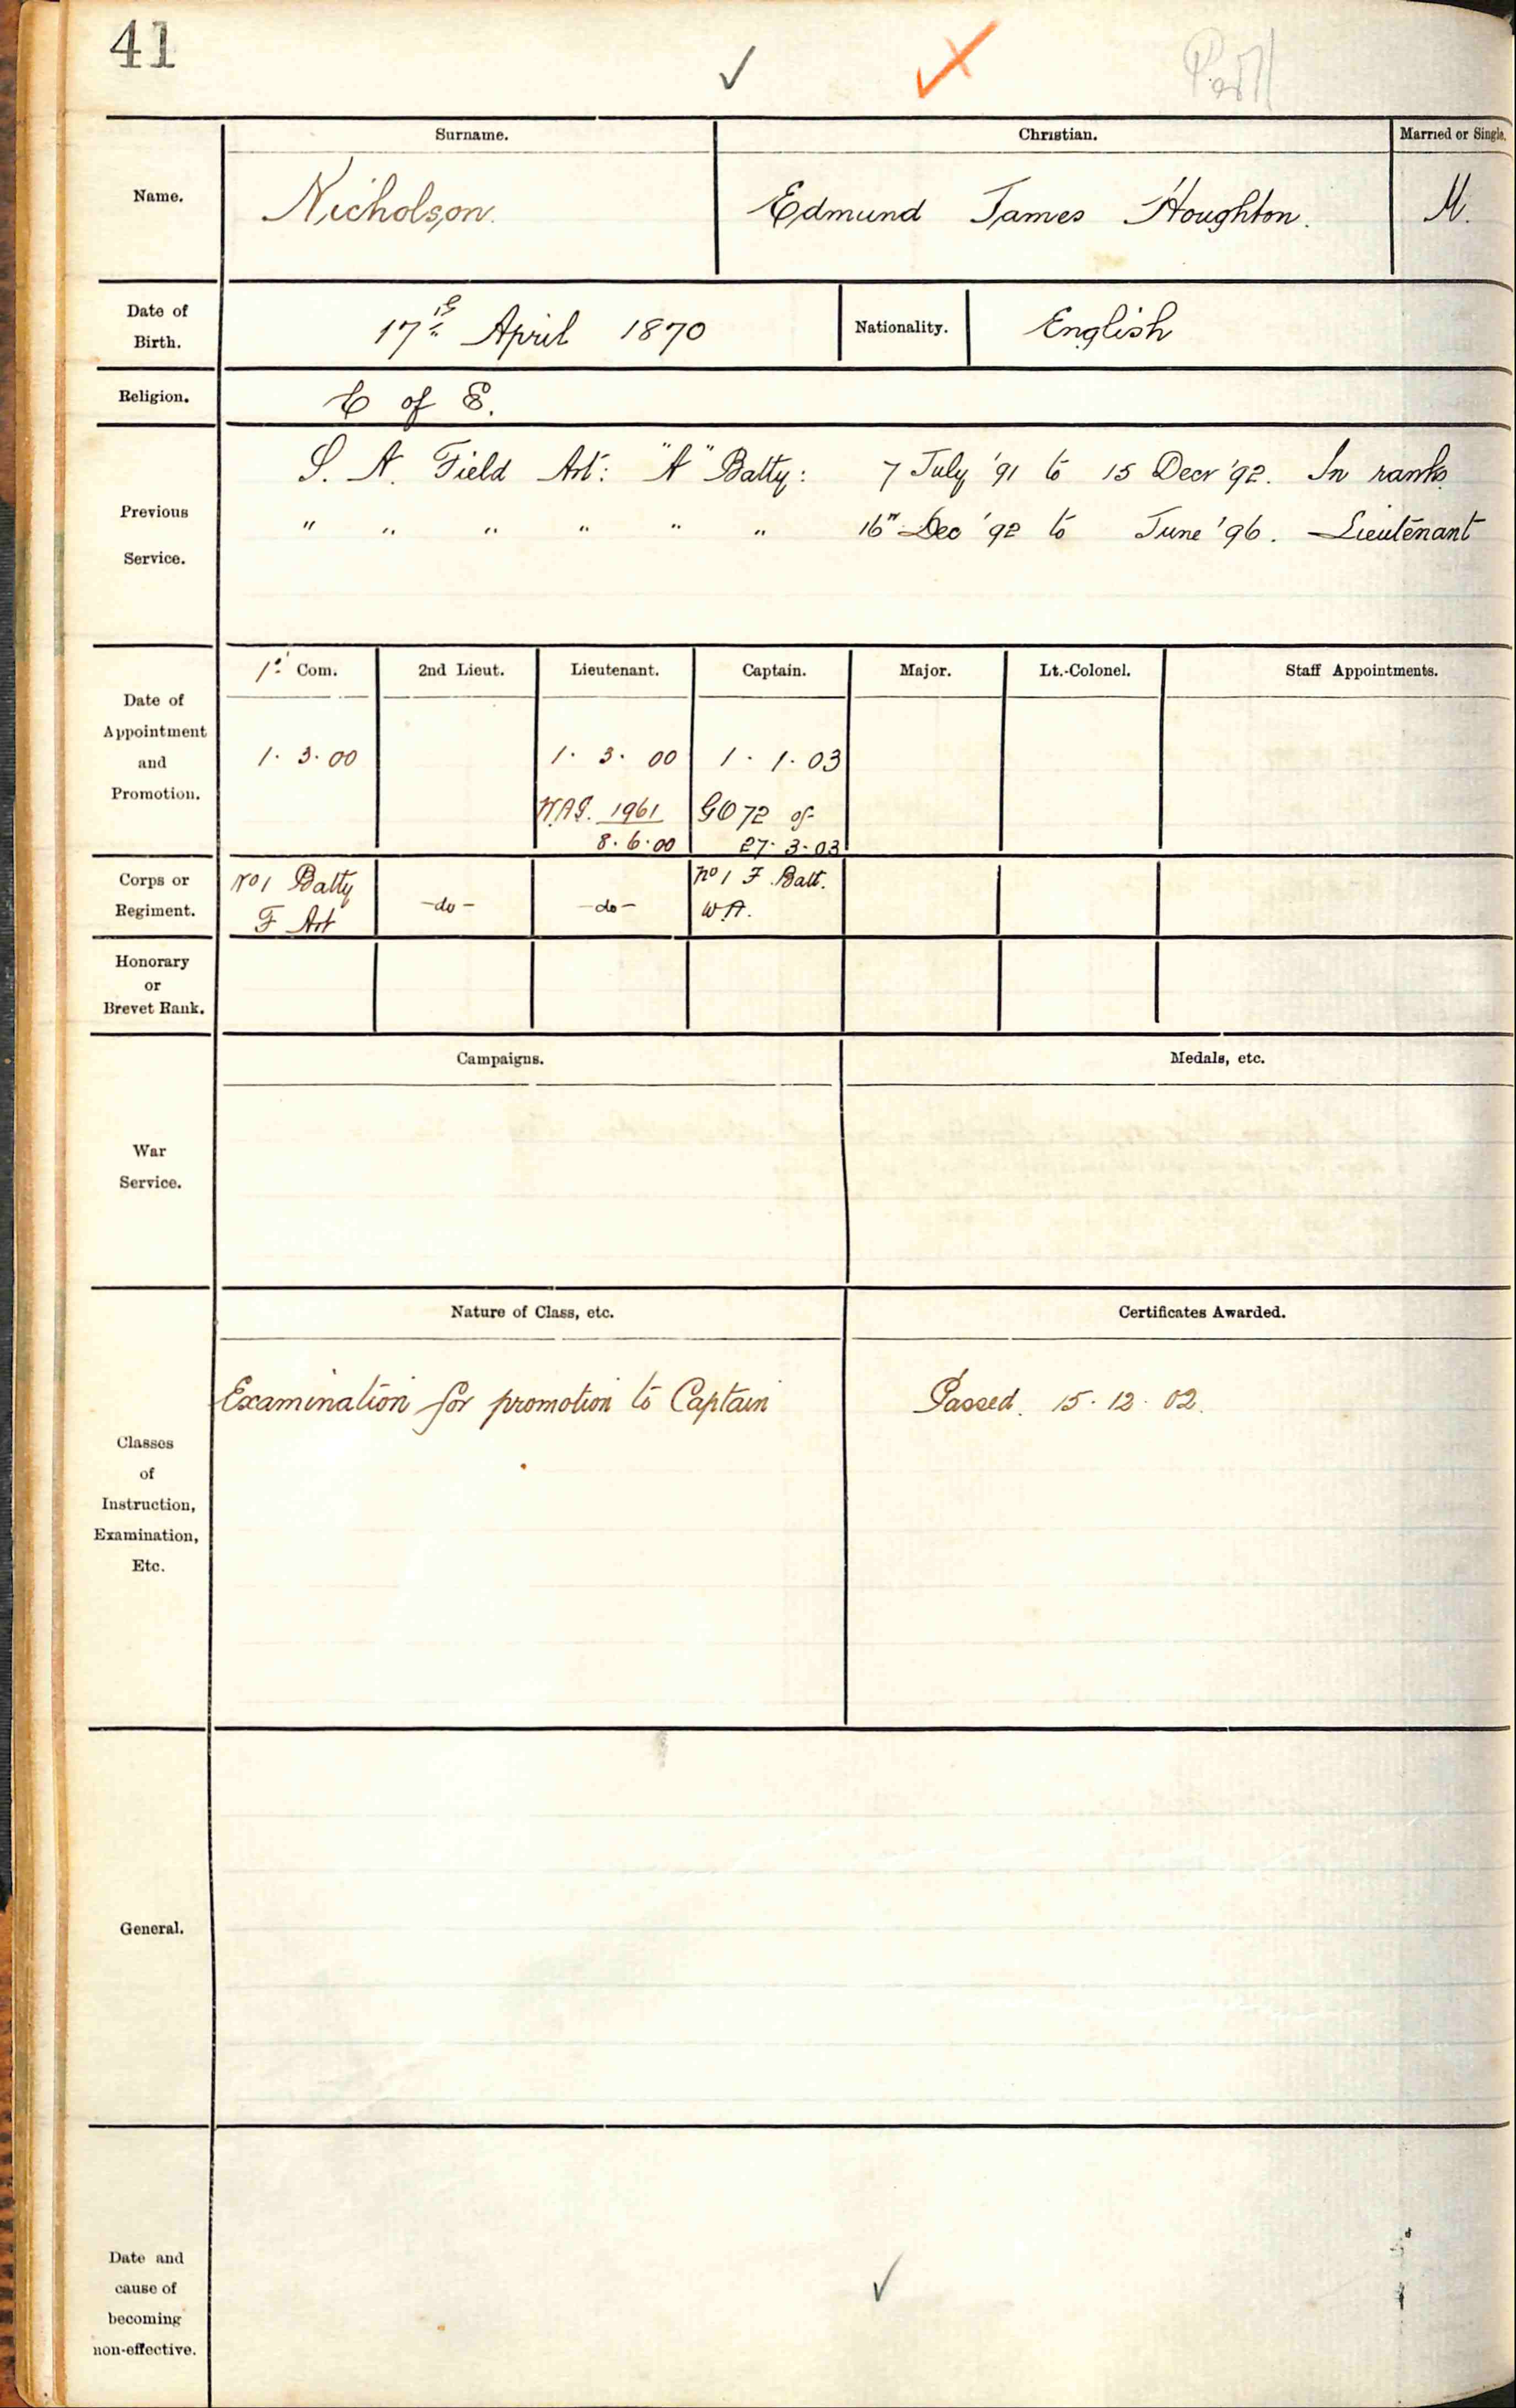 41
Surname. Christian. Married or Single.
Name. Nicholson. Edmund James Houghton. M.
Date of Birth. 17th April 1870 Nationality. English
Religion. C of E.
Previous Service.
S. A. Field Art: "A" Batty: 7 July '91 to 15 Decr '92. In ranks
" " " " " " 16th Dec '92 to June '96. Lieutenant
1st Com. 2nd Lieut. Lieutenant. Captain. Major. Lt.-Colonel. Staff Appointments.
Date of Appointment and Promotion.
1. 3. 00 1. 3. 00 1. 1. 03
W.A.G. 1961 GO 72 of
8. 6. 00 27. 3. 03
Corps or Regiment.
No 1 Batty -do- -do- No 1 F. Batt.
F Art W.A.
Honorary or Brevet Rank.
Campaigns. Medals, etc.
War Service.
Nature of Class, etc. Certificates Awarded.
Examination for promotion to Captain Passed. 15. 12. 02.
Classes
of
Instruction,
Examination,
Etc.
General.
Date and
cause of
becoming
non-effective.